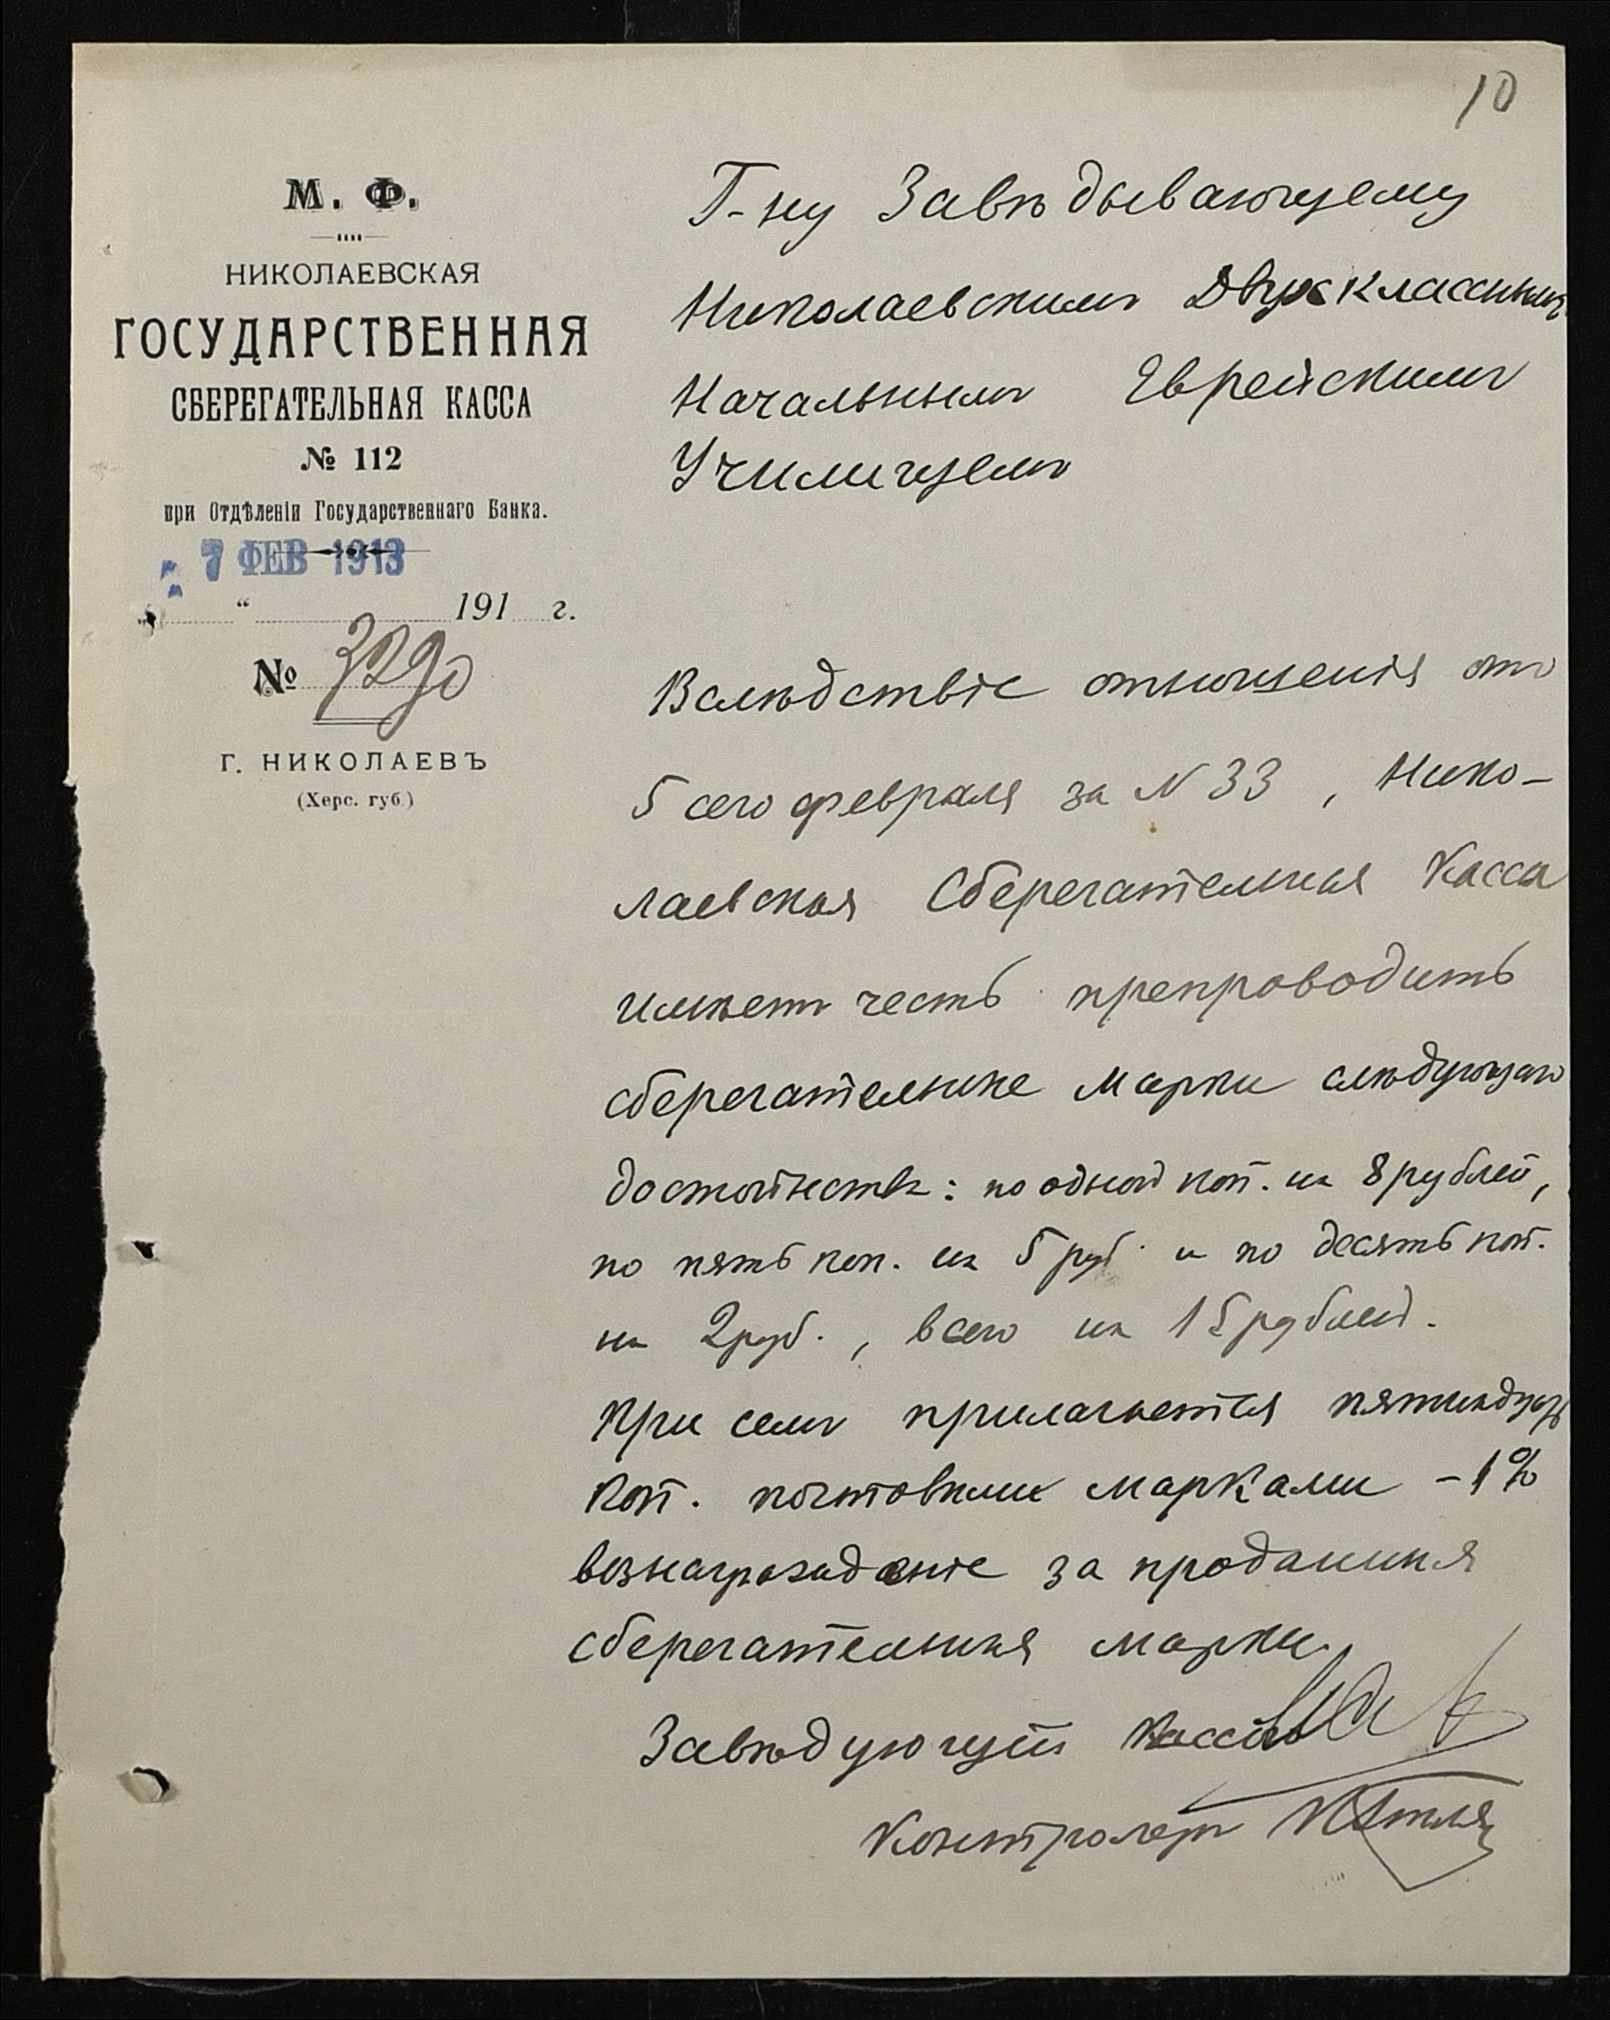 10
М. Ф.
НИКОЛАЕВСКАЯ
ГОСУДАРСТВЕННАЯ
СБЕРЕГАТЕЛЬНАЯ КАССА
№ 112
при Отдѣленіи Государственнаго Банка.
7 ФЕВ 1913
„ “ 191 г.
№ 3290
Г. НИКОЛАЕВЪ
(Херс. губ.)
Г-ну Завѣдывающему
Николаевскимъ Двухкласснымъ
Начальнымъ Еврейскимъ
Училищемъ
Вслѣдствіе отношенія отъ
5 сего февраля за N 33, Нико-
лаевская Сберегательная Касса
имѣетъ честь препроводить
сберегательные марки слѣдующаго
достоинства: по одной коп. на 8 рублей,
по пять коп. на 5 руб. и по десять коп.
на 2 руб., всего на 15 рублей.
При семъ прилагается пятнадцать
коп. почтовыми марками – 1%
вознагражденіе за проданныя
сберегательныя марки.
Завѣдующій Кассой
Контролеръ